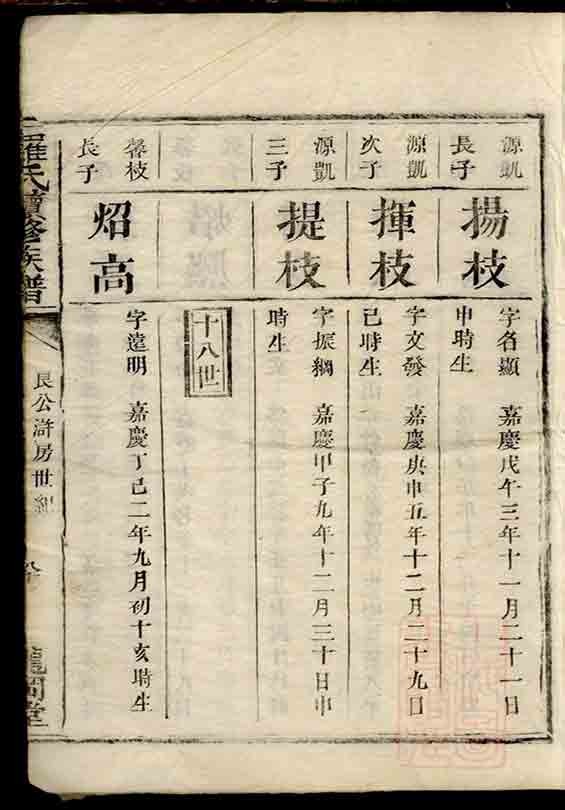 源凱
長子
揚枝
字名顯 嘉慶戊午三年十一月二十一日
申時生
源凱
次子
揮枝
字文發 嘉慶庚申五年十二月二十九日
巳時生
源凱
三子
提枝
字振綱 嘉慶甲子九年十二月三十日申
時生
十八世
馨枝
長子
炤高
字遠明 嘉慶丁巳二年九月初十亥時生
羅氏續修族譜
艮公滸房世